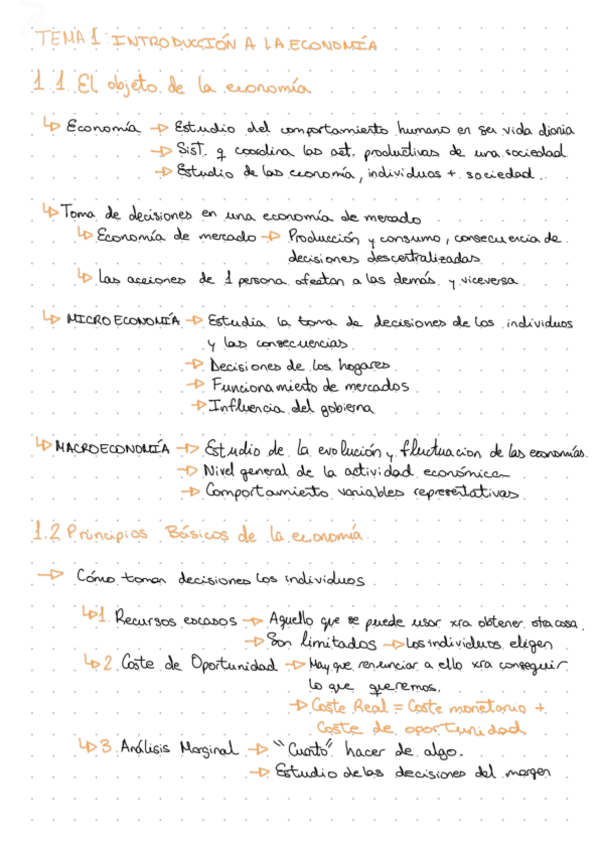 TEMA 1: INTRODUCCIÓN A LA ECONOMÍA
1.1. El objeto de la economía
↳ Economía → Estudio del comportamiento humano en ser vida diaria
→ Sist. q coordina las act. productivas de una sociedad
→ Estudio de las economía, individuos + sociedad.
↳ Toma de decisiones en una economía de mercado
↳ Economía de mercado → Producción y consumo, consecuencia de
decisiones descentralizadas.
↳ Las acciones de 1 persona afectan a las demás y viceversa.
↳ MICROECONOMÍA → Estudia la toma de decisiones de los individuos
y las consecuencias.
→ Decisiones de los hogares.
→ Funcionamiento de mercados.
→ Influencia del gobierna
↳ MACROECONOMÍA → Estudio de la evolución y fluctuacion de las economías.
→ Nivel general de la actividad económica
→ Comportamiento variables representativas.
1.2 Principios Básicos de la economía.
→ Cómo toman decisiones los individuos
↳ 1 Recursos escasos → Aquello que se puede usar xra obtener otra cosa.
→ Son limitados → Los individuos eligen
↳ 2. Coste de Oportunidad → Hay que renunciar a ello xra conseguir
lo que queremos.
→ Coste Real = Coste monetario +
Coste de oportunidad
↳ 3 Análisis Marginal → "Cuanto" hacer de algo.
→ Estudio de las decisiones del margen